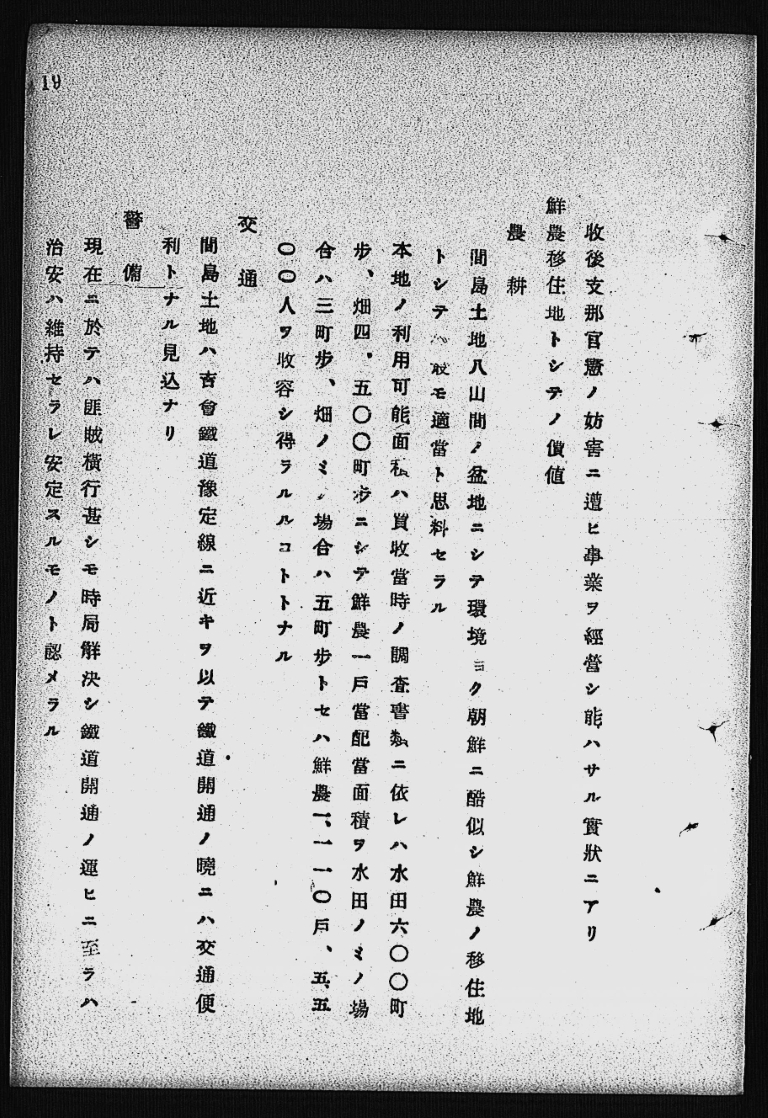 19
收後支那官憲ノ妨害ニ遭ヒ事業ヲ經營シ能ハサル實狀ニアリ
鮮農移住地トシテノ價値
農耕
間島土地ハ山間ノ盆地ニシテ環境ヨク朝鮮ニ酷似シ鮮農ノ移住地
トシテハ最モ適當ト思料セラル
本地ノ利用可能面積ハ買收當時ノ調査書類ニ依レハ水田六〇〇町
步、畑四、五〇〇町步ニシテ鮮農一戶當配當面積ヲ水田ノミノ場
合ハ三町步、畑ノミノ場合ハ五町步トセハ鮮農一、一一〇戶、五、五
〇〇人ヲ收容シ得ラルルコトトナル
交通
間島土地ハ吉會鐵道豫定線ニ近キヲ以テ鐵道開通ノ曉ニハ交通便
利トナル見込ナリ
警備
現在ニ於テハ匪賊橫行甚シモ時局解決シ鐵道開通ノ運ヒニ至ラハ
治安ハ維持セラレ安定スルモノト認メラル